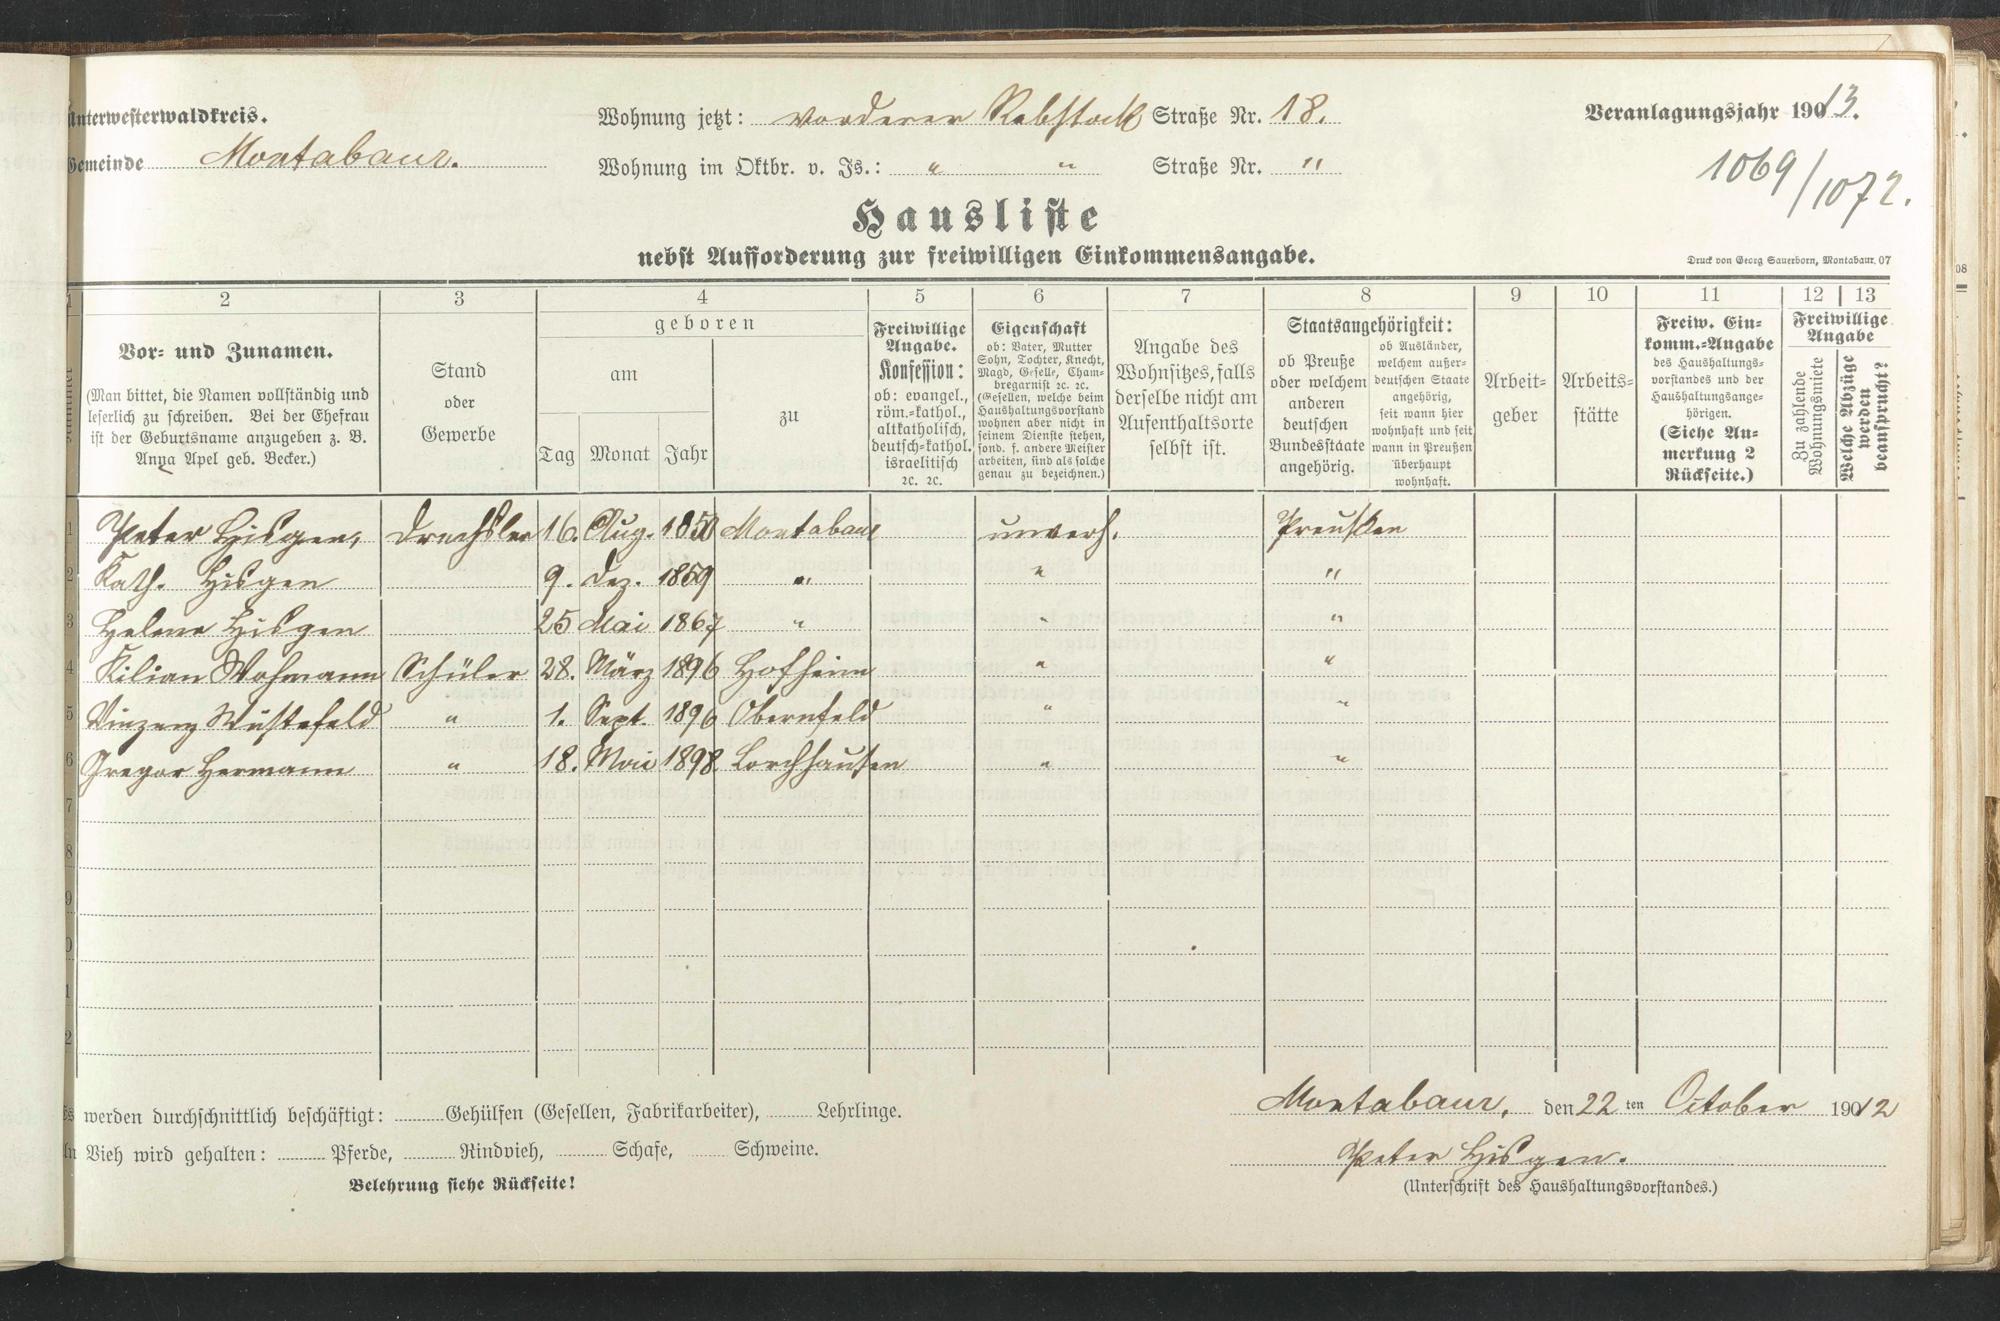 Unterwesterwaldkreis.
Wohnung jetzt: vorderer Rebstock Straße Nr. 18.
Veranlagungsjahr 1913.
Gemeinde Montabaur.
Wohnung im Oktbr. v. Js.: " " Straße Nr. "
1069/1072.
Hausliste
nebst Aufforderung zur freiwilligen Einkommensangabe.
Druck von Georg Sauerborn, Montabaur. 07
1 2 3 4 5 6 7 8 9 10 11 12 13
Vor- und Zunamen.
(Man bittet, die Namen vollständig und
leserlich zu schreiben. Bei der Ehefrau
ist der Geburtsname anzugeben z. B.
Anna Apel geb. Becker.)
Stand
oder
Gewerbe
geboren
am
Tag Monat Jahr
zu
Freiwillige
Angabe.
Konfession:
ob: evangel.,
röm.-kathol.,
altkatholisch,
deutsch-kathol.
israelitisch
2c. 2c.
Eigenschaft
ob: Vater, Mutter
Sohn, Tochter, Knecht,
Magd, Geselle, Cham-
bregarnist 2c. 2c.
(Gesellen, welche beim
Haushaltungsvorstand
wohnen aber nicht in
seinem Dienste stehen,
sond. f. andere Meister
arbeiten, sind als solche
genau zu bezeichnen.)
Angabe des
Wohnsitzes, falls
derselbe nicht am
Aufenthaltsorte
selbst ist.
Staatsangehörigkeit:
ob Preuße
oder welchem
anderen
deutschen
Bundesstaate
angehörig.
ob Ausländer,
welchem außer-
deutschen Staate
angehörig,
seit wann hier
wohnhaft und seit
wann in Preußen
überhaupt
wohnhaft.
Arbeit-
geber
Arbeits-
stätte
Freiw. Ein-
komm.-Angabe
des Haushaltungs-
vorstandes und der
Haushaltungsange-
hörigen.
(Siehe An-
merkung 2
Rückseite.)
Freiwillige
Angabe
Zu zahlende
Wohnungsmiete
Welche Abzüge
werden
beansprucht?
1 Peter Hisgen, Drechsler 16. Aug. 1850 Montabaur unverh. Preußen
2 Kath. Hisgen 9. Dez. 1859 " " "
3 Helene Hisgen 25 Mai 1867 " " "
4 Kilian Wohmann Schüler 28. März 1896 Hofheim " "
5 Vinzenz Wüstefeld " 1. Sept. 1896 Obernfeld " "
6 Gregor Hermann " 18. Mai 1898 Lorchhausen " "
7
8
9
0
1
2
Es werden durchschnittlich beschäftigt: Gehülfen (Gesellen, Fabrikarbeiter), Lehrlinge.
Montabaur, den 22 ten October 1912
An Vieh wird gehalten: Pferde, Rindvieh, Schafe, Schweine.
Peter Hisgen.
Belehrung siehe Rückseite!
(Unterschrift des Haushaltungsvorstandes.)